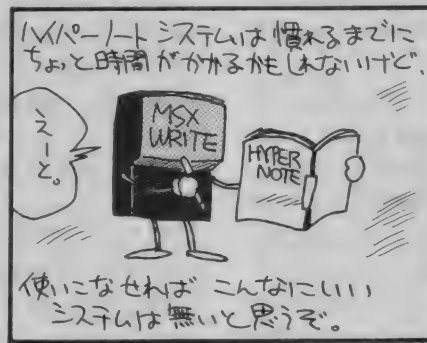 ハイパーノート システムは 慣れるまでに
ちょっと時間がかかるかもしれないけど、
えーと。
MSX
WRITE
HYPER
NOTE
使いこなせれば こんなにいい
システムは無いと思うぞ。